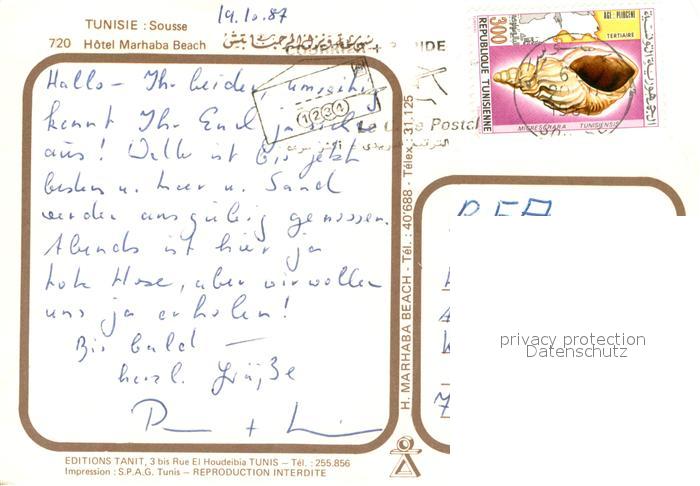 19.10.87
TUNISIE : Sousse
720 Hôtel Marhaba Beach
Hallo – Ihr beiden
kennt Ihr Euch ja
aus! Wetter ist bis jetzt
bestens u. Meer u. Sand
werden ausgiebig genossen.
Abends ist hier ja
tote Hose, aber wir wollen
uns ja erholen!
Bis bald –
herzl. Grüße
EDITIONS TANIT, 3 bis Rue El Houdeibia TUNIS – Tél. : 255.856
Impression : S.P.A.G. Tunis – REPRODUCTION INTERDITE
H. MARHABA BEACH - Tél. : 40'688 - Télex : 31.125
1231
Code Postal
300
REPUBLIQUE TUNISIENNE
AGE : PLIOCENE
TERTIAIRE
TUNISIENSIS
الجمهورية التونسية
BRD
privacy protection
Datenschutz